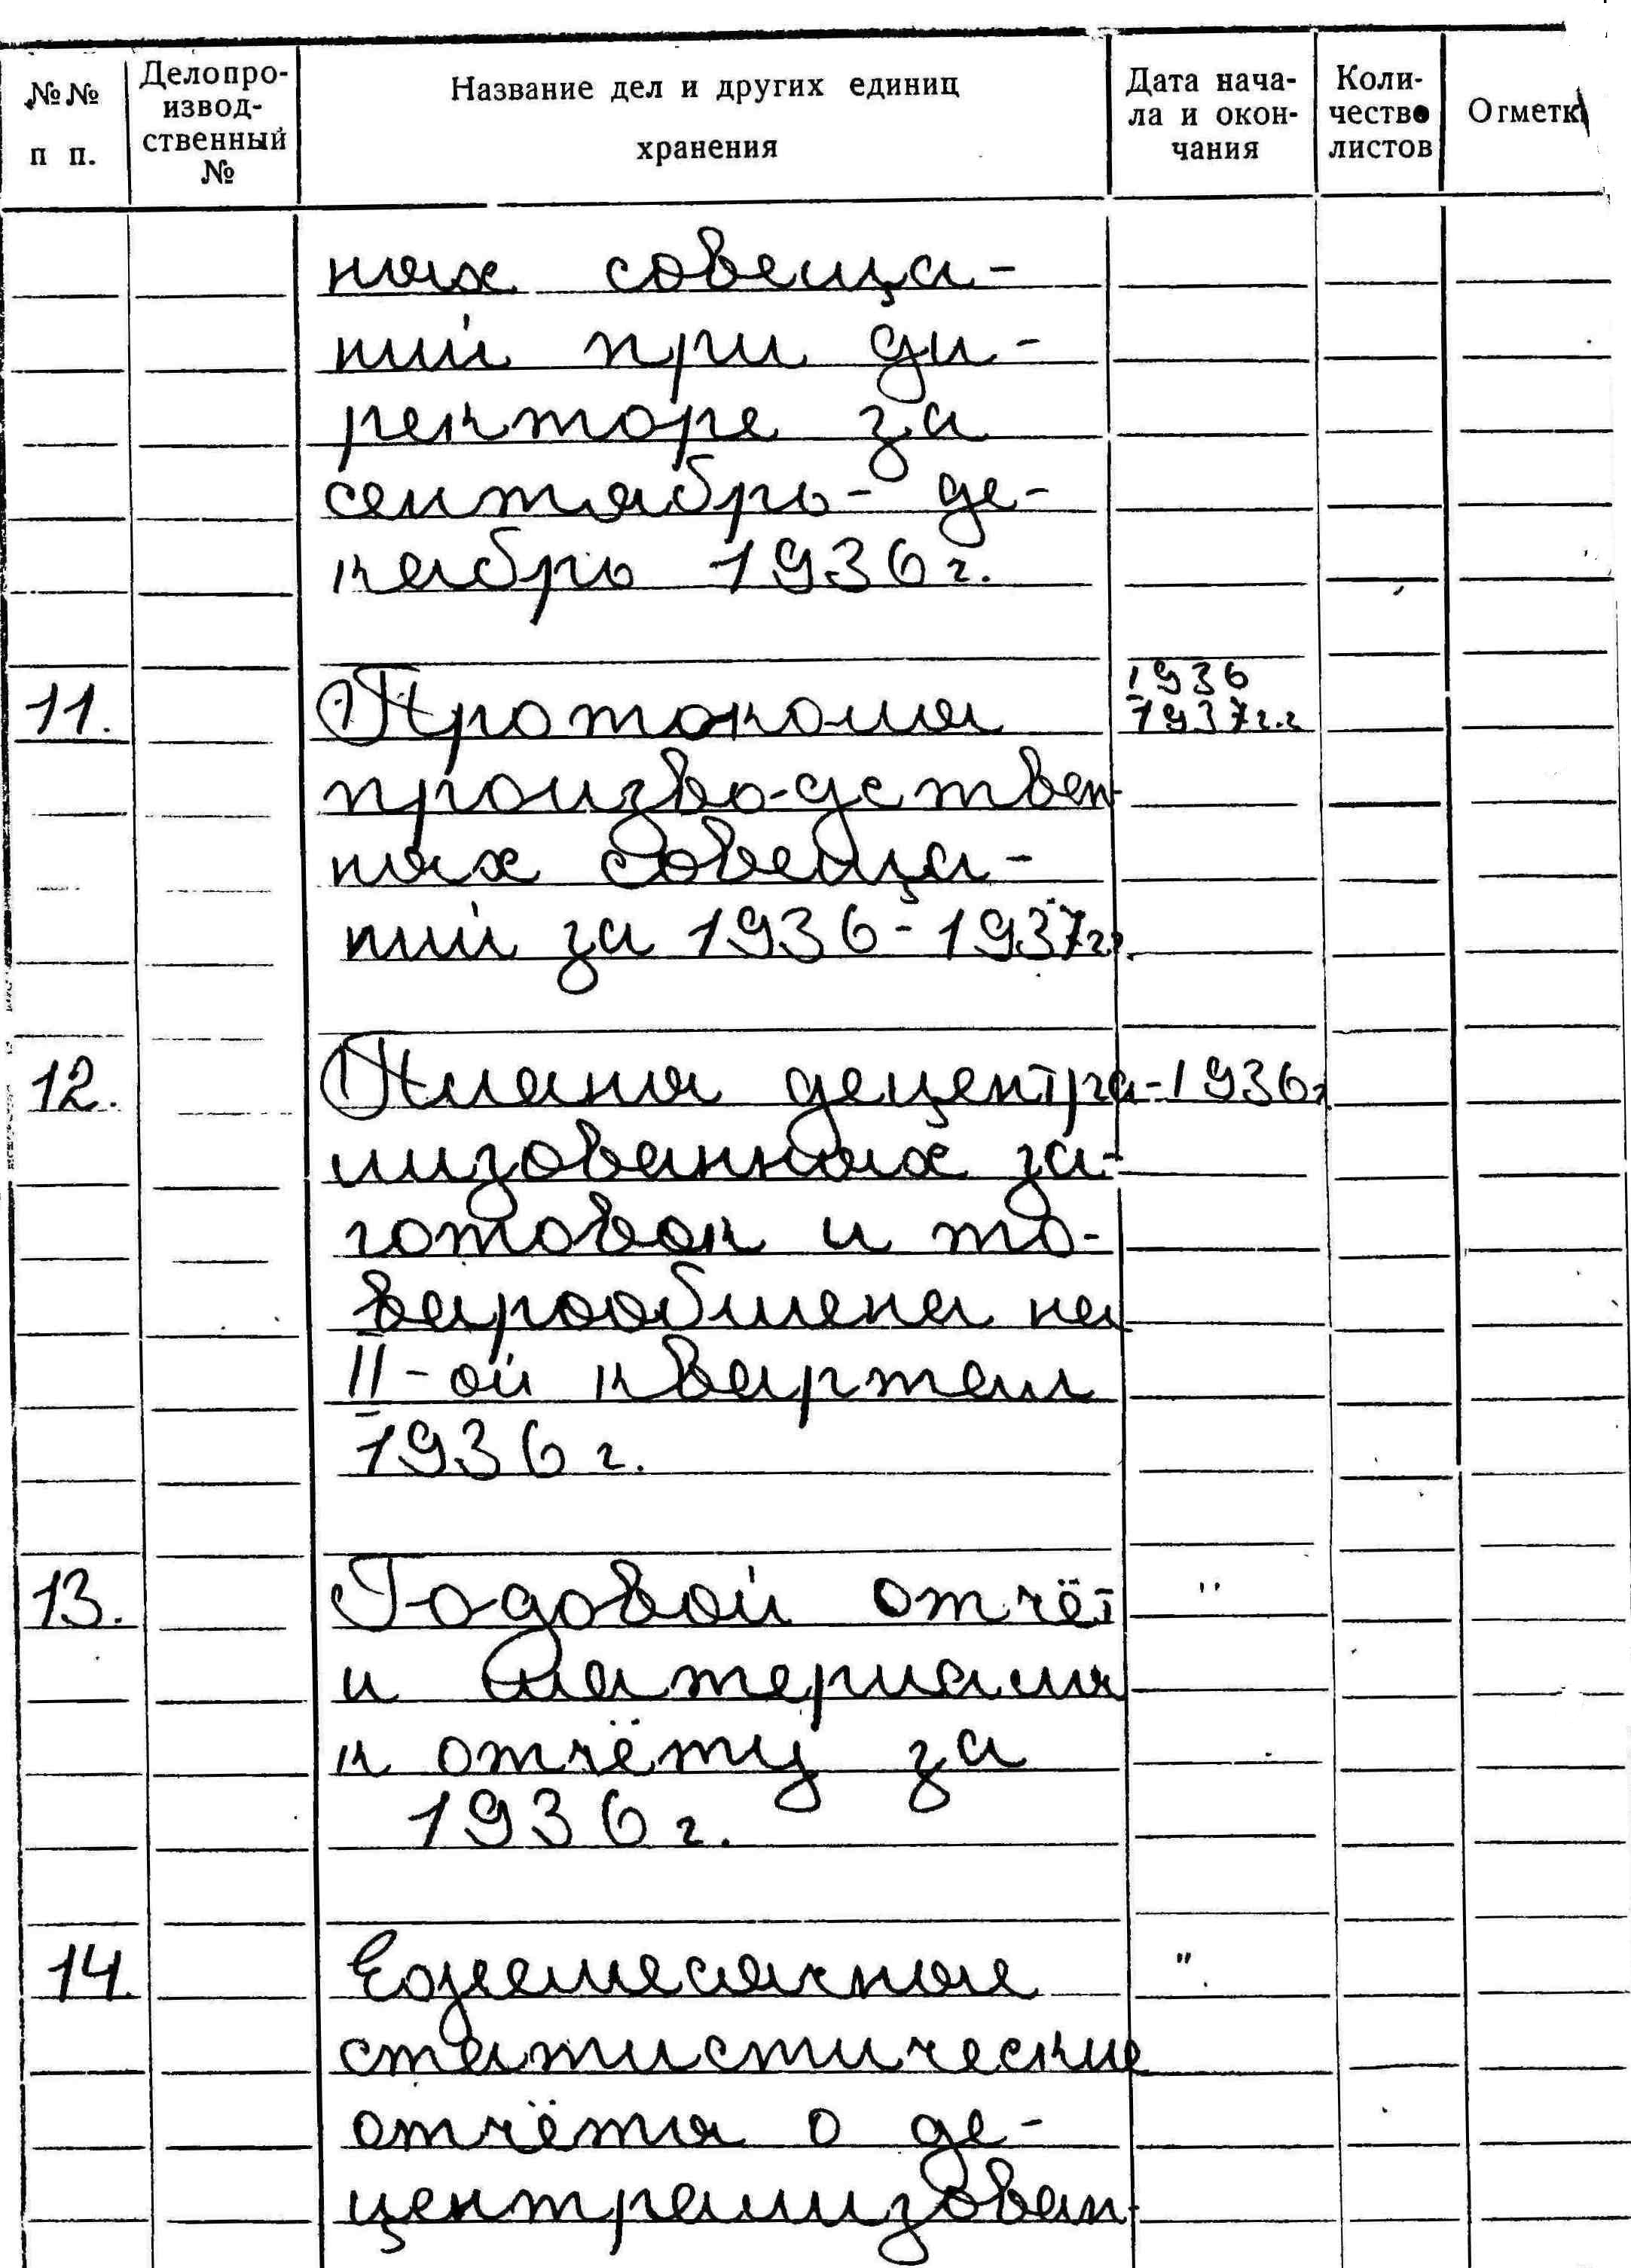 №№ п п.
Делопро-
извод-
ственный
№
Название дел и других единиц
хранения
Дата нача-
ла и окон-
чания
Коли-
чество
листов
Отметки
ных совеща-
ний при ди-
ректоре за
сентябрь- де-
кабрь 1936 г.
1936
11. Протоколы 1937г.г
производствен-
ных совеща-
ний за 1936-1937г.г.
12. Планы децентра- 1936г.
лизованных за-
готовок и то-
варообмена на
II-ой квартал
1936 г.
13. Годовой отчёт "
и материалы
к отчёту за
1936 г.
14. Ежемесячные "
статистические
отчёты о де-
централизован-